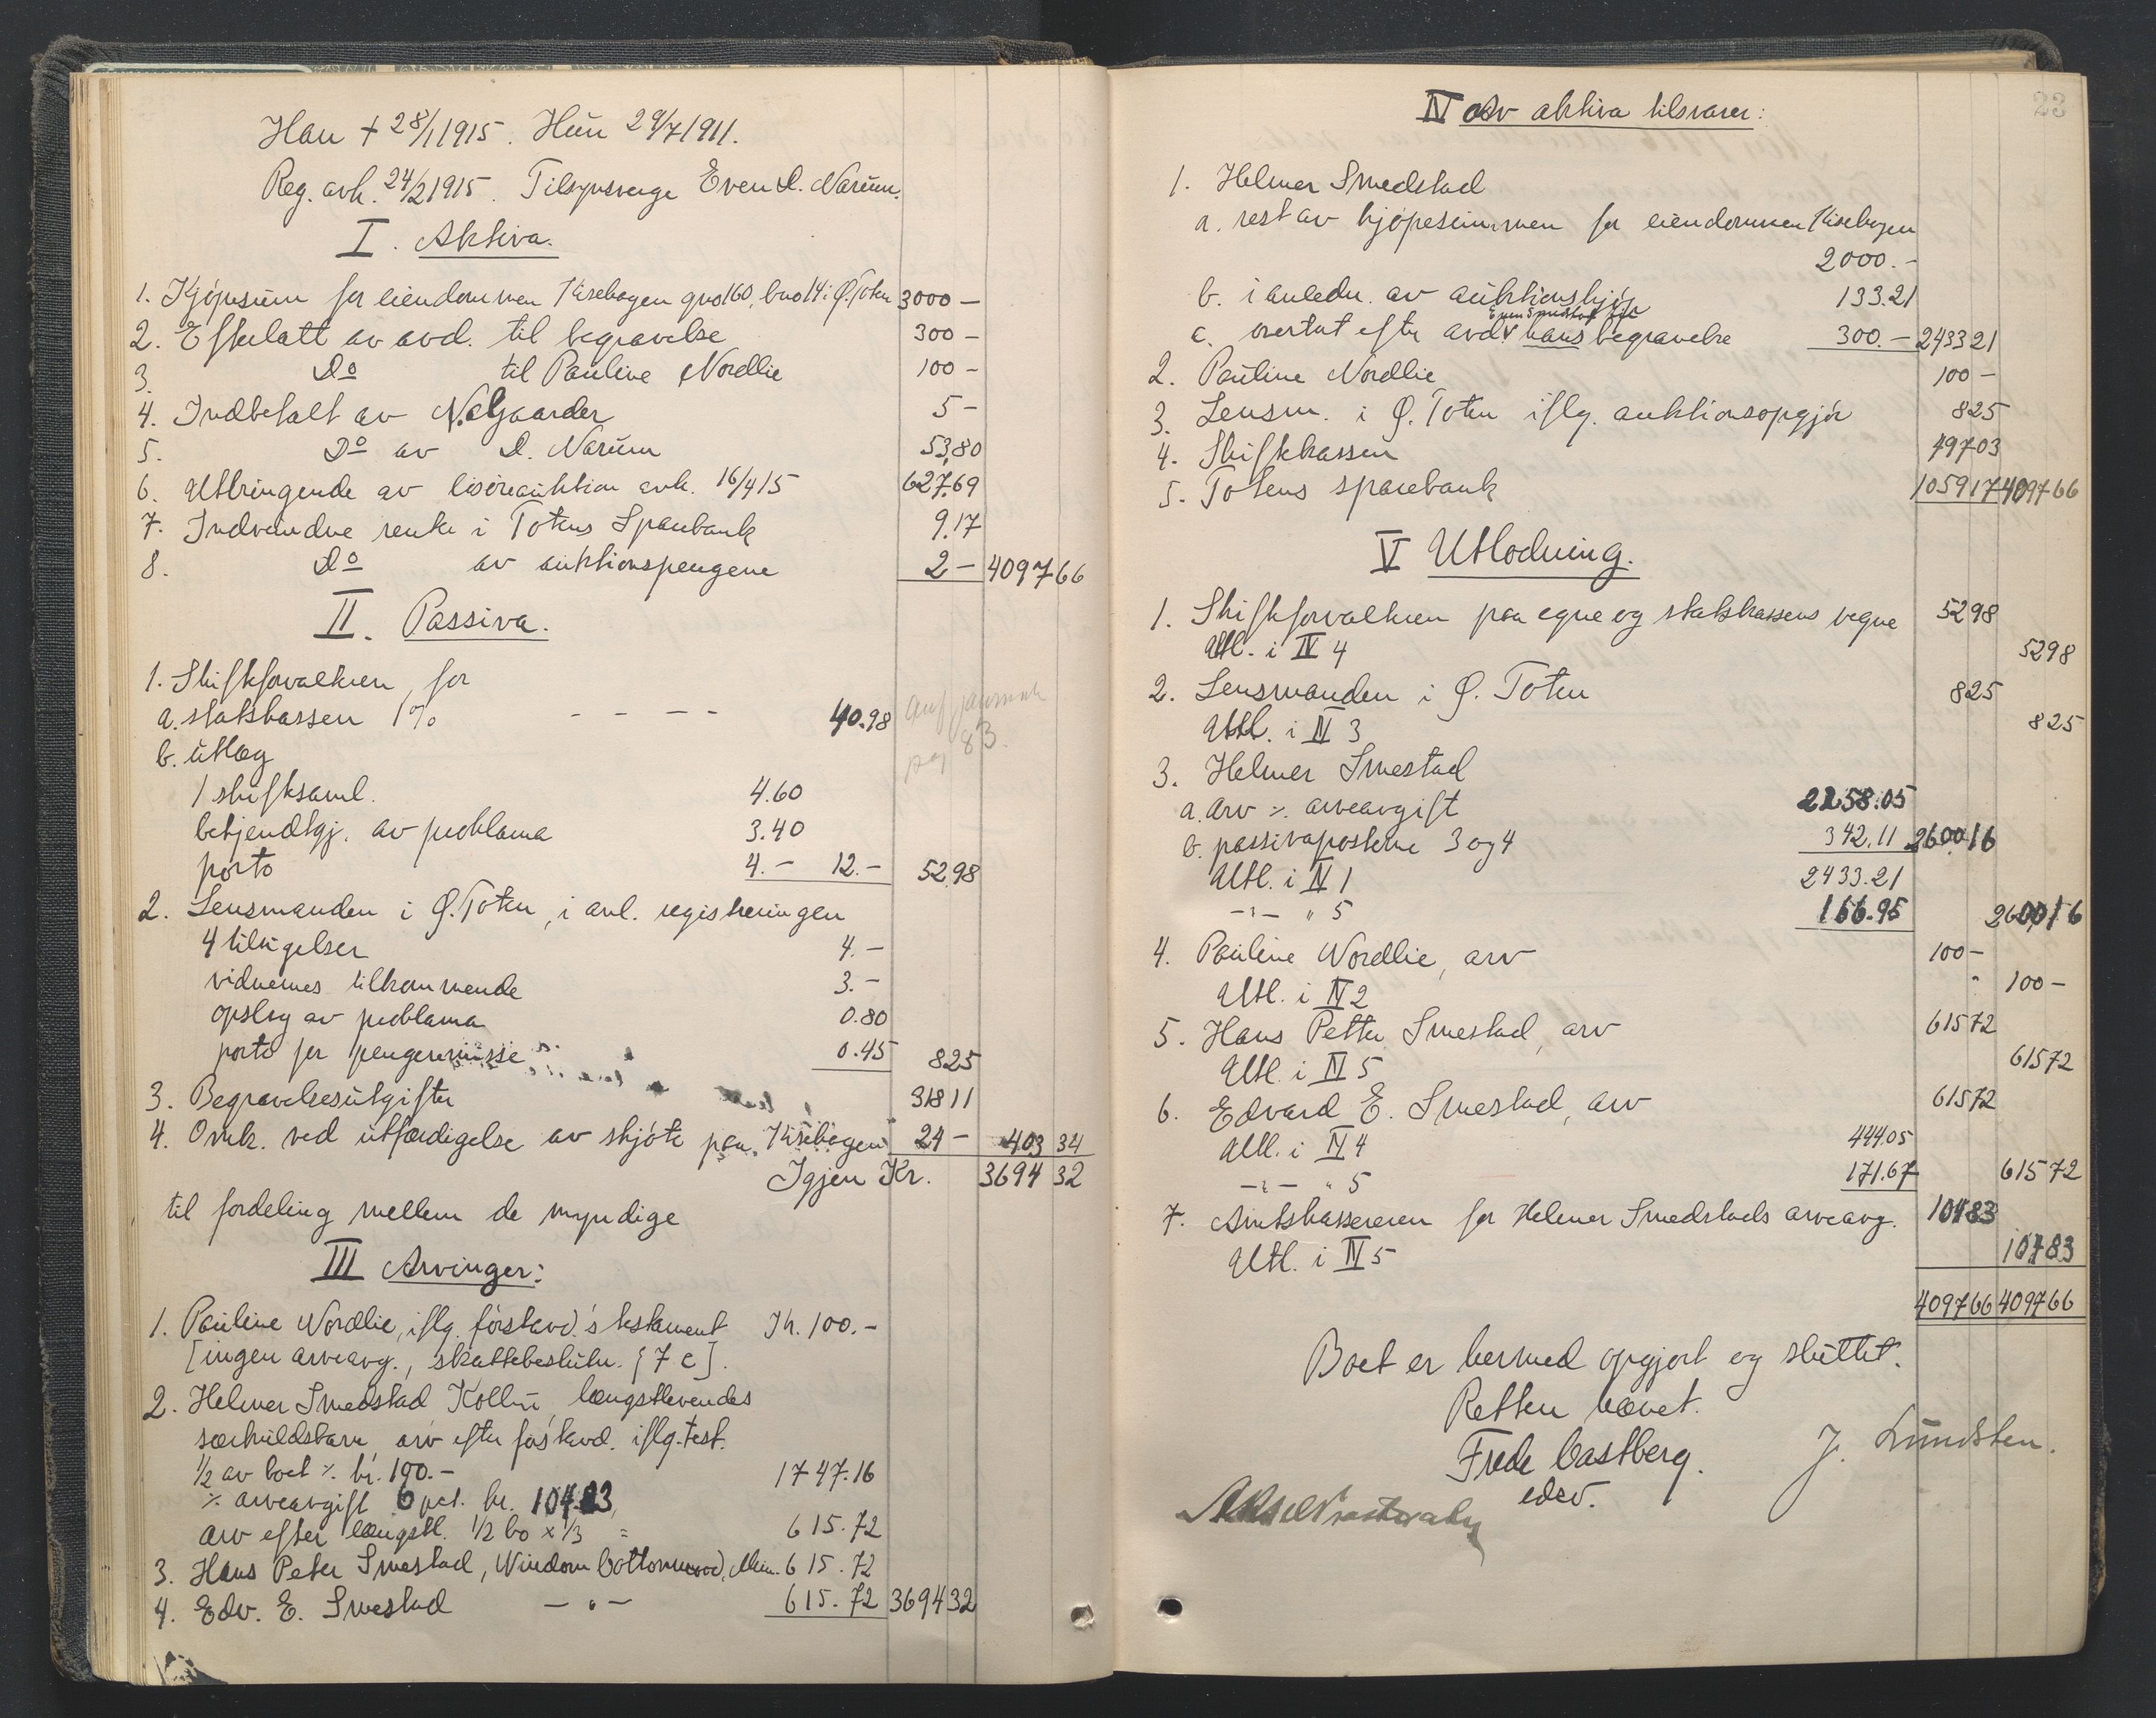 Han + 28/1 1915. Hun 29/7 1911.
Reg. avh. 24/2 1915. Tilsynsverge Even L. Narum.
I. Aktiva.
1. Kjøpesum for eiendommen Kisehagen gno 160, bno 14 i Ø. Toten 3000 –
2. Efterlatt av avd. til begravelse 300 –
3. Do til Pauline Nordlie 100 –
4. Indbetalt av N. Gaarder 5 –
5. Do av L. Narum 53,80
6. Utbringende av løsøreauktion avh. 16/4 15 627,69
7. Indvundne renter i Totens Sparebank 9.17
8. Do av auktionspengene 2 – 4097 66
II. Passiva.
1. Skifteforvalteren, for
a. statskassen 1% - - - - 40.98
pag 83.
b. utlæg
1 skiftesaml. 4.60
bekjendtgj. av proklama 3.40
porto 4.– 12.– 52 98
2. Lensmanden i Ø. Toten, i anl. registreringen
4 tilsigelser 4.–
vidnernes tilkommende 3.–
opslag av proklama 0.80
porto for pengeremisse 0.45 8 25
3. Begravelsesutgifter 318 11
4. Omk. ved utfærdigelse av skjøte paa Kisehagen 24 – 403 34
Igjen Kr. 3694 32
til fordeling mellem de myndige
III Arvinger:
1. Pauline Nordlie, iflg. førstavd.'s testament Kr. 100.–
[ingen arveavg., skattebeslutn. § 7 c].
2. Helmer Smedstad Kolbu, længstlevendes
særkuldsbarn, arv efter førstavd. iflg. test.
1/2 av boet ÷ kr. 100.– 1747.16
÷ arveavgift 6 pct. kr. 104.83,
arv efter længstl. 1/2 bo x 1/3 = 615.72
3. Hans Peter Smestad, Windom Cottonwood, Minn. 615.72
4. Edv. E. Smestad – " – 615.72 3694 32
23
IV Av aktiva tilsvarer:
1. Helmer Smedstad
a. rest av kjøpesummen for eiendommen Kisehagen
2000.–
b. i anledn. av auktionskjøp 133.21
c. overtat efter avd. hans begravelse 300.– 2433 21
2. Pauline Nordlie 100 –
3. Lensm. i Ø. Toten iflg. auktionsopgjør 8 25
4. Skiftekassen 497 03
5. Totens sparebank 1059 17 4097 66
V Utlodning.
1. Skifteforvalteren paa egne og statskassens vegne 52 98
Utl. i IV 4 52 98
2. Lensmanden i Ø. Toten 8 25
Utl. i IV 3 8 25
3. Helmer Smestad
a. arv ÷ arveavgift 2258.05
b. passivaposterne 3 og 4 342.11 2600 16
Utl. i IV 1 2433.21
– " – " 5 166.95 2600 16
4. Pauline Nordlie, arv 100 –
Utl. i IV 2 100 –
5. Hans Petter Smestad, arv 615 72
Utl. i IV 5 615 72
6. Edvard E. Smestad, arv 615 72
Utl. i IV 4 444.05
– " – " 5 171.67 615 72
7. Amtskassereren for Helmer Smedstads arveavg. 104 83
Utl. i IV 5 104 83
4097 66 4097 66
Boet er hermed opgjort og sluttet.
Retten hævet.
Frede Castberg.
edsv.
J. Lundsten.